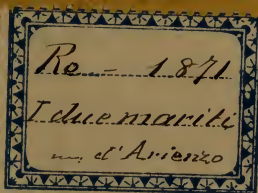 Re – 1871
I due mariti
m. d'Arienzo